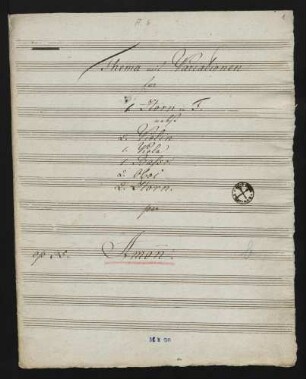 Thema mit Variationen
für
1 Horn in F.
nebst
2. Violin
1. Viola
1. Basso
2. Oboi
2. Horn.
par
op. Amon.